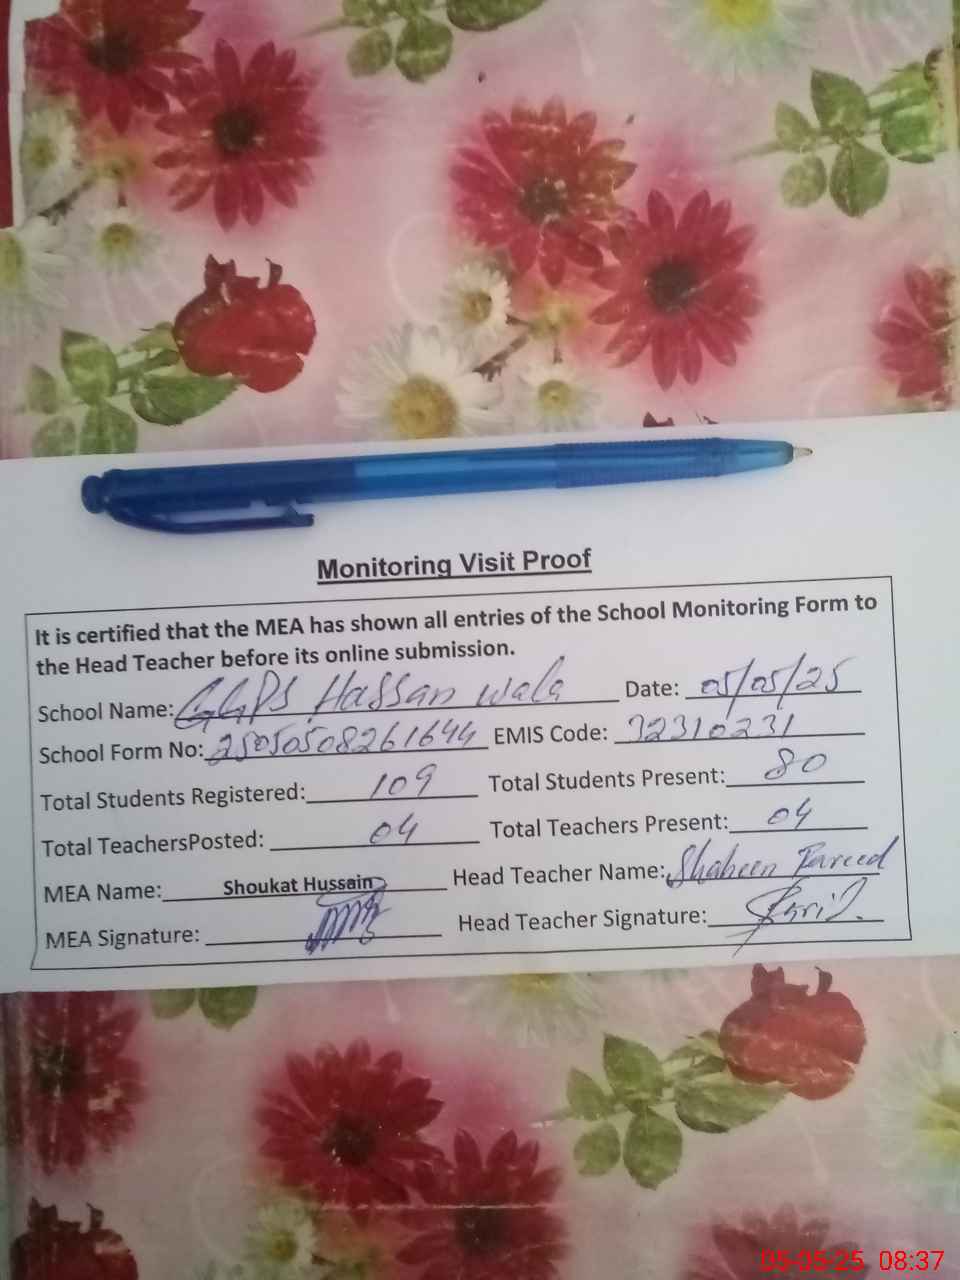 Monitoring Visit Proof
It is certified that the MEA has shown all entries of the School Monitoring Form to
the Head Teacher before its online submission.
School Name: GGPS Hassan wala Date: 05/05/25
School Form No: 25050508261644 EMIS Code: 32310231
Total Students Registered: 109 Total Students Present: 80
Total TeachersPosted: 04 Total Teachers Present: 04
MEA Name: Shoukat Hussain Head Teacher Name: Shaheen Fareed
MEA Signature: Head Teacher Signature:
05-05-25 08:37